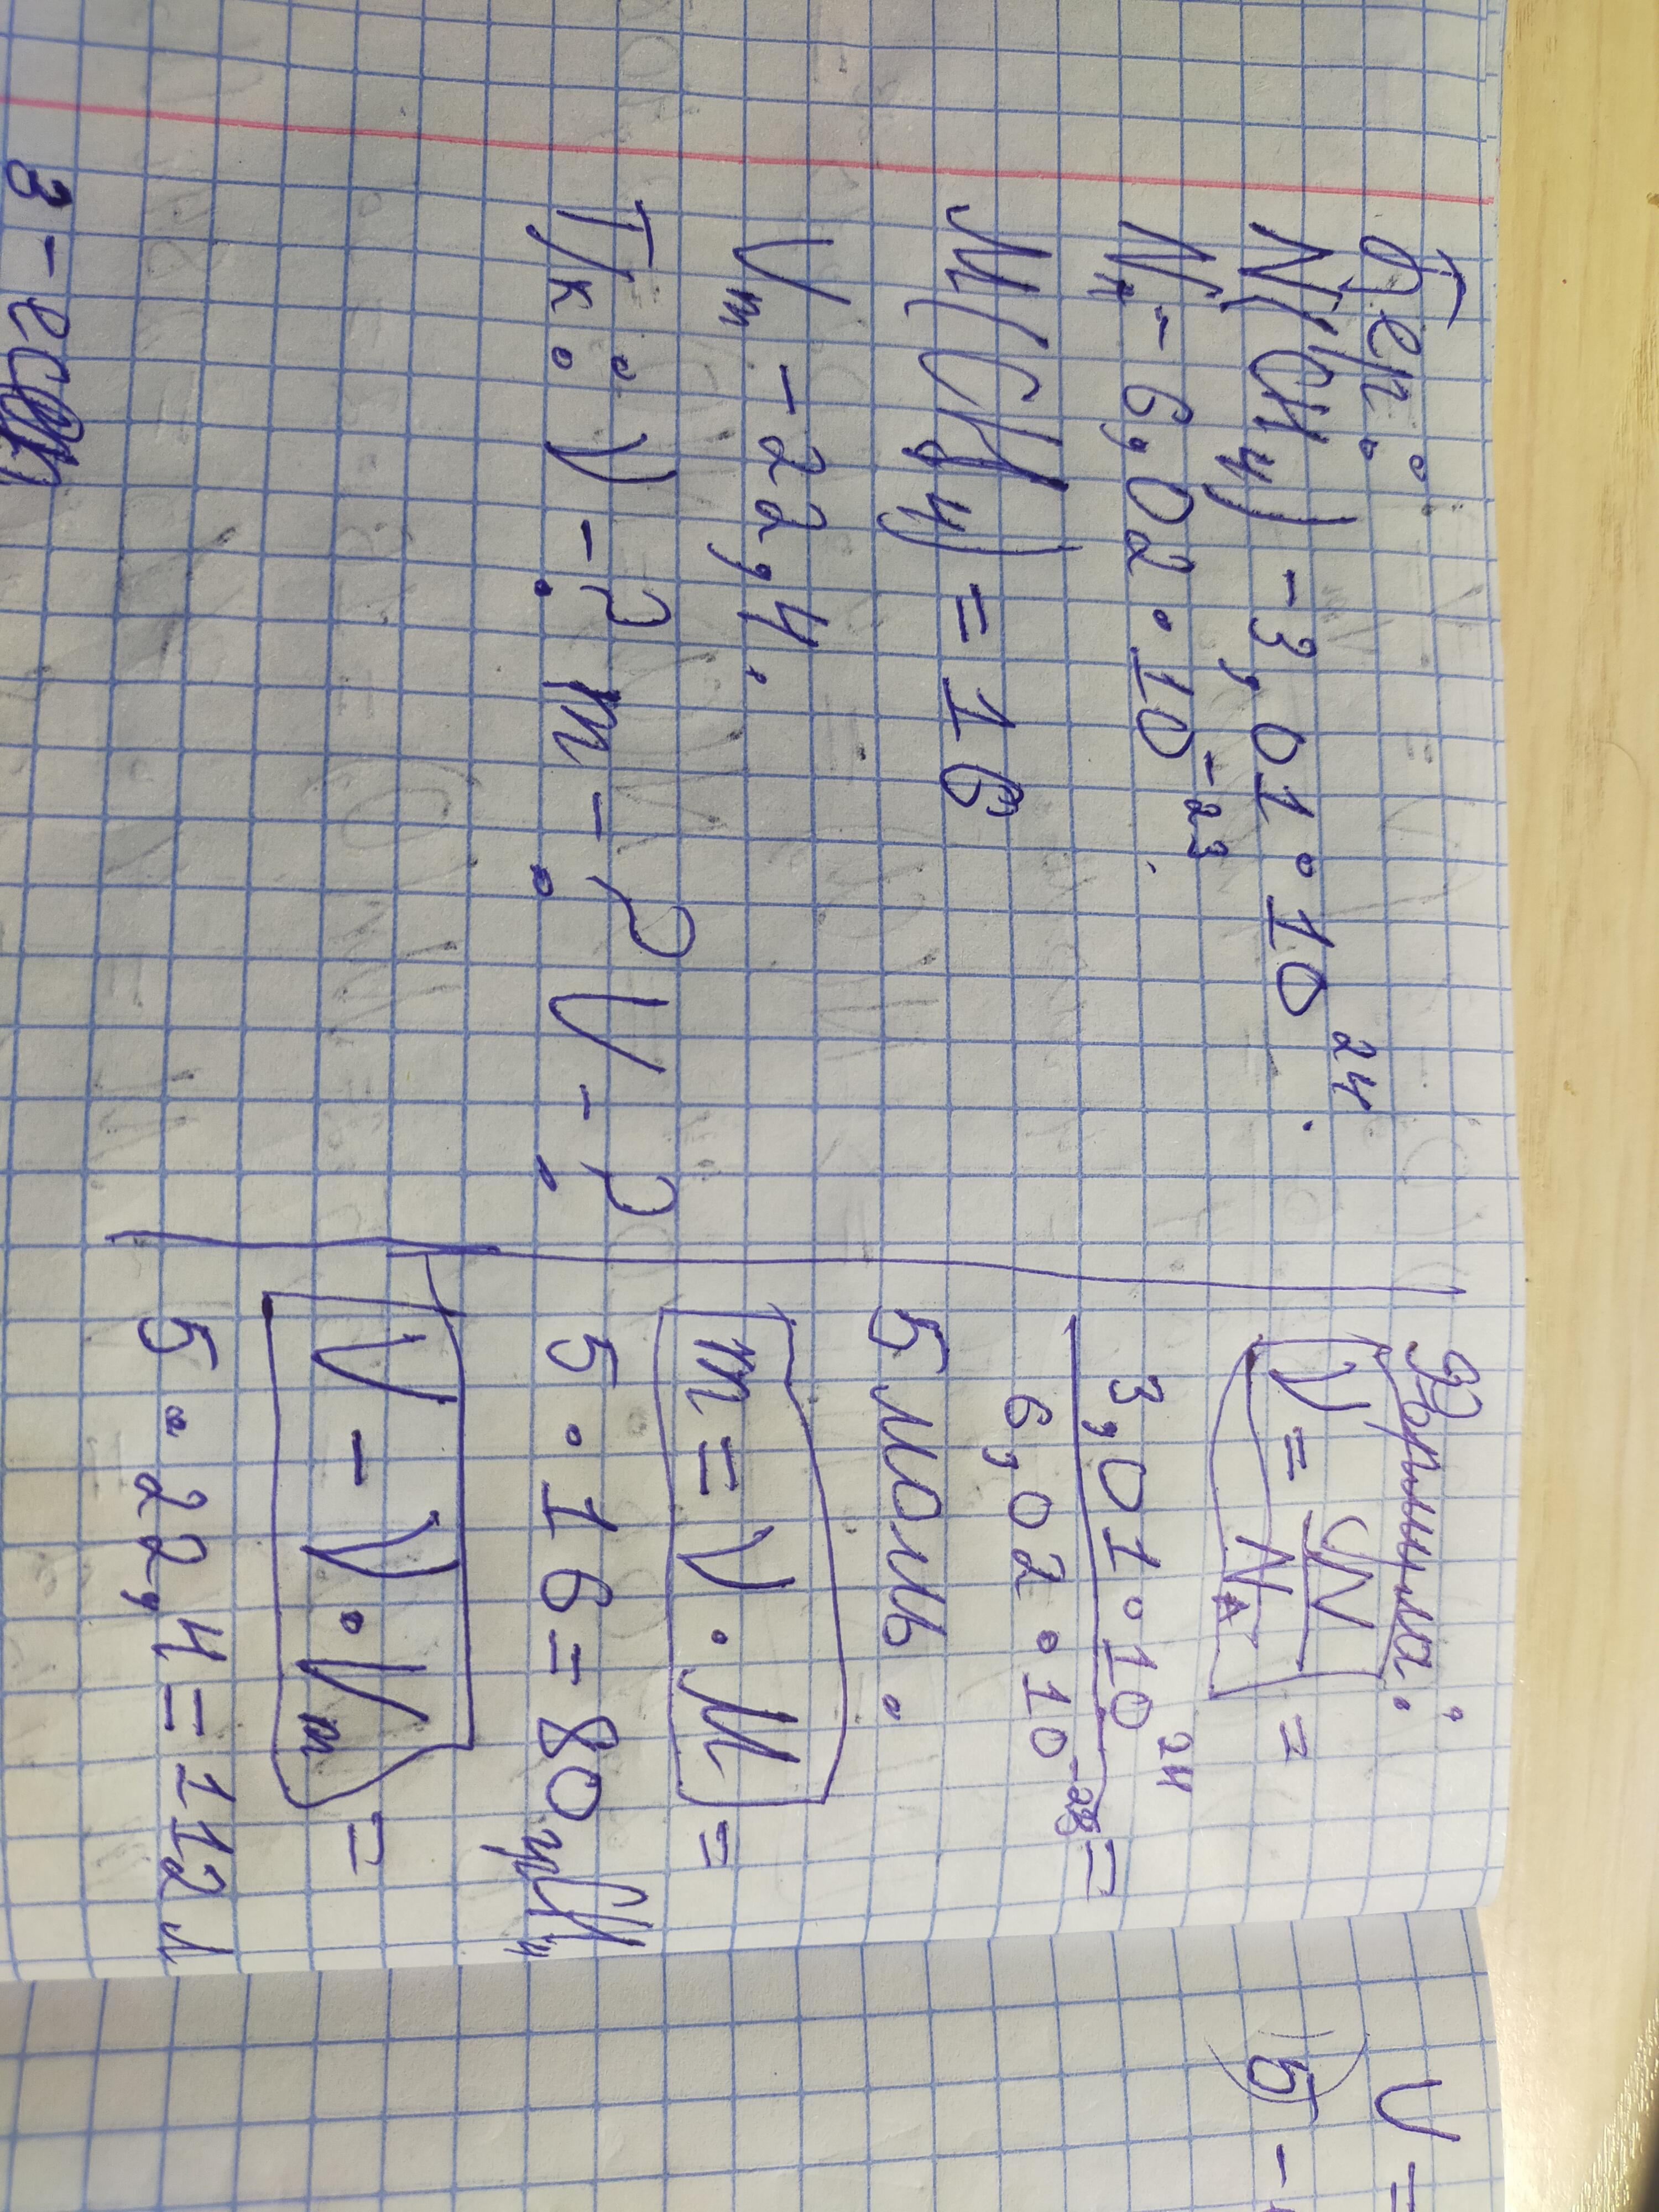 Бер:
N(CH4) - 3,01 · 10²⁴.
NA - 6,02 · 10⁻²³.
M(CH4) = 16
Vm - 22,4.
Т/к: ν - ? m - ? V - ?
3 - ес
Формула:
ν = N/NA =
3,01 · 10²⁴ / 6,02 · 10⁻²³ =
5 моль.
m = ν · M =
5 · 16 = 80 гр CH4
V - ν · Vm =
5 · 22,4 = 112 л
V =
5 -